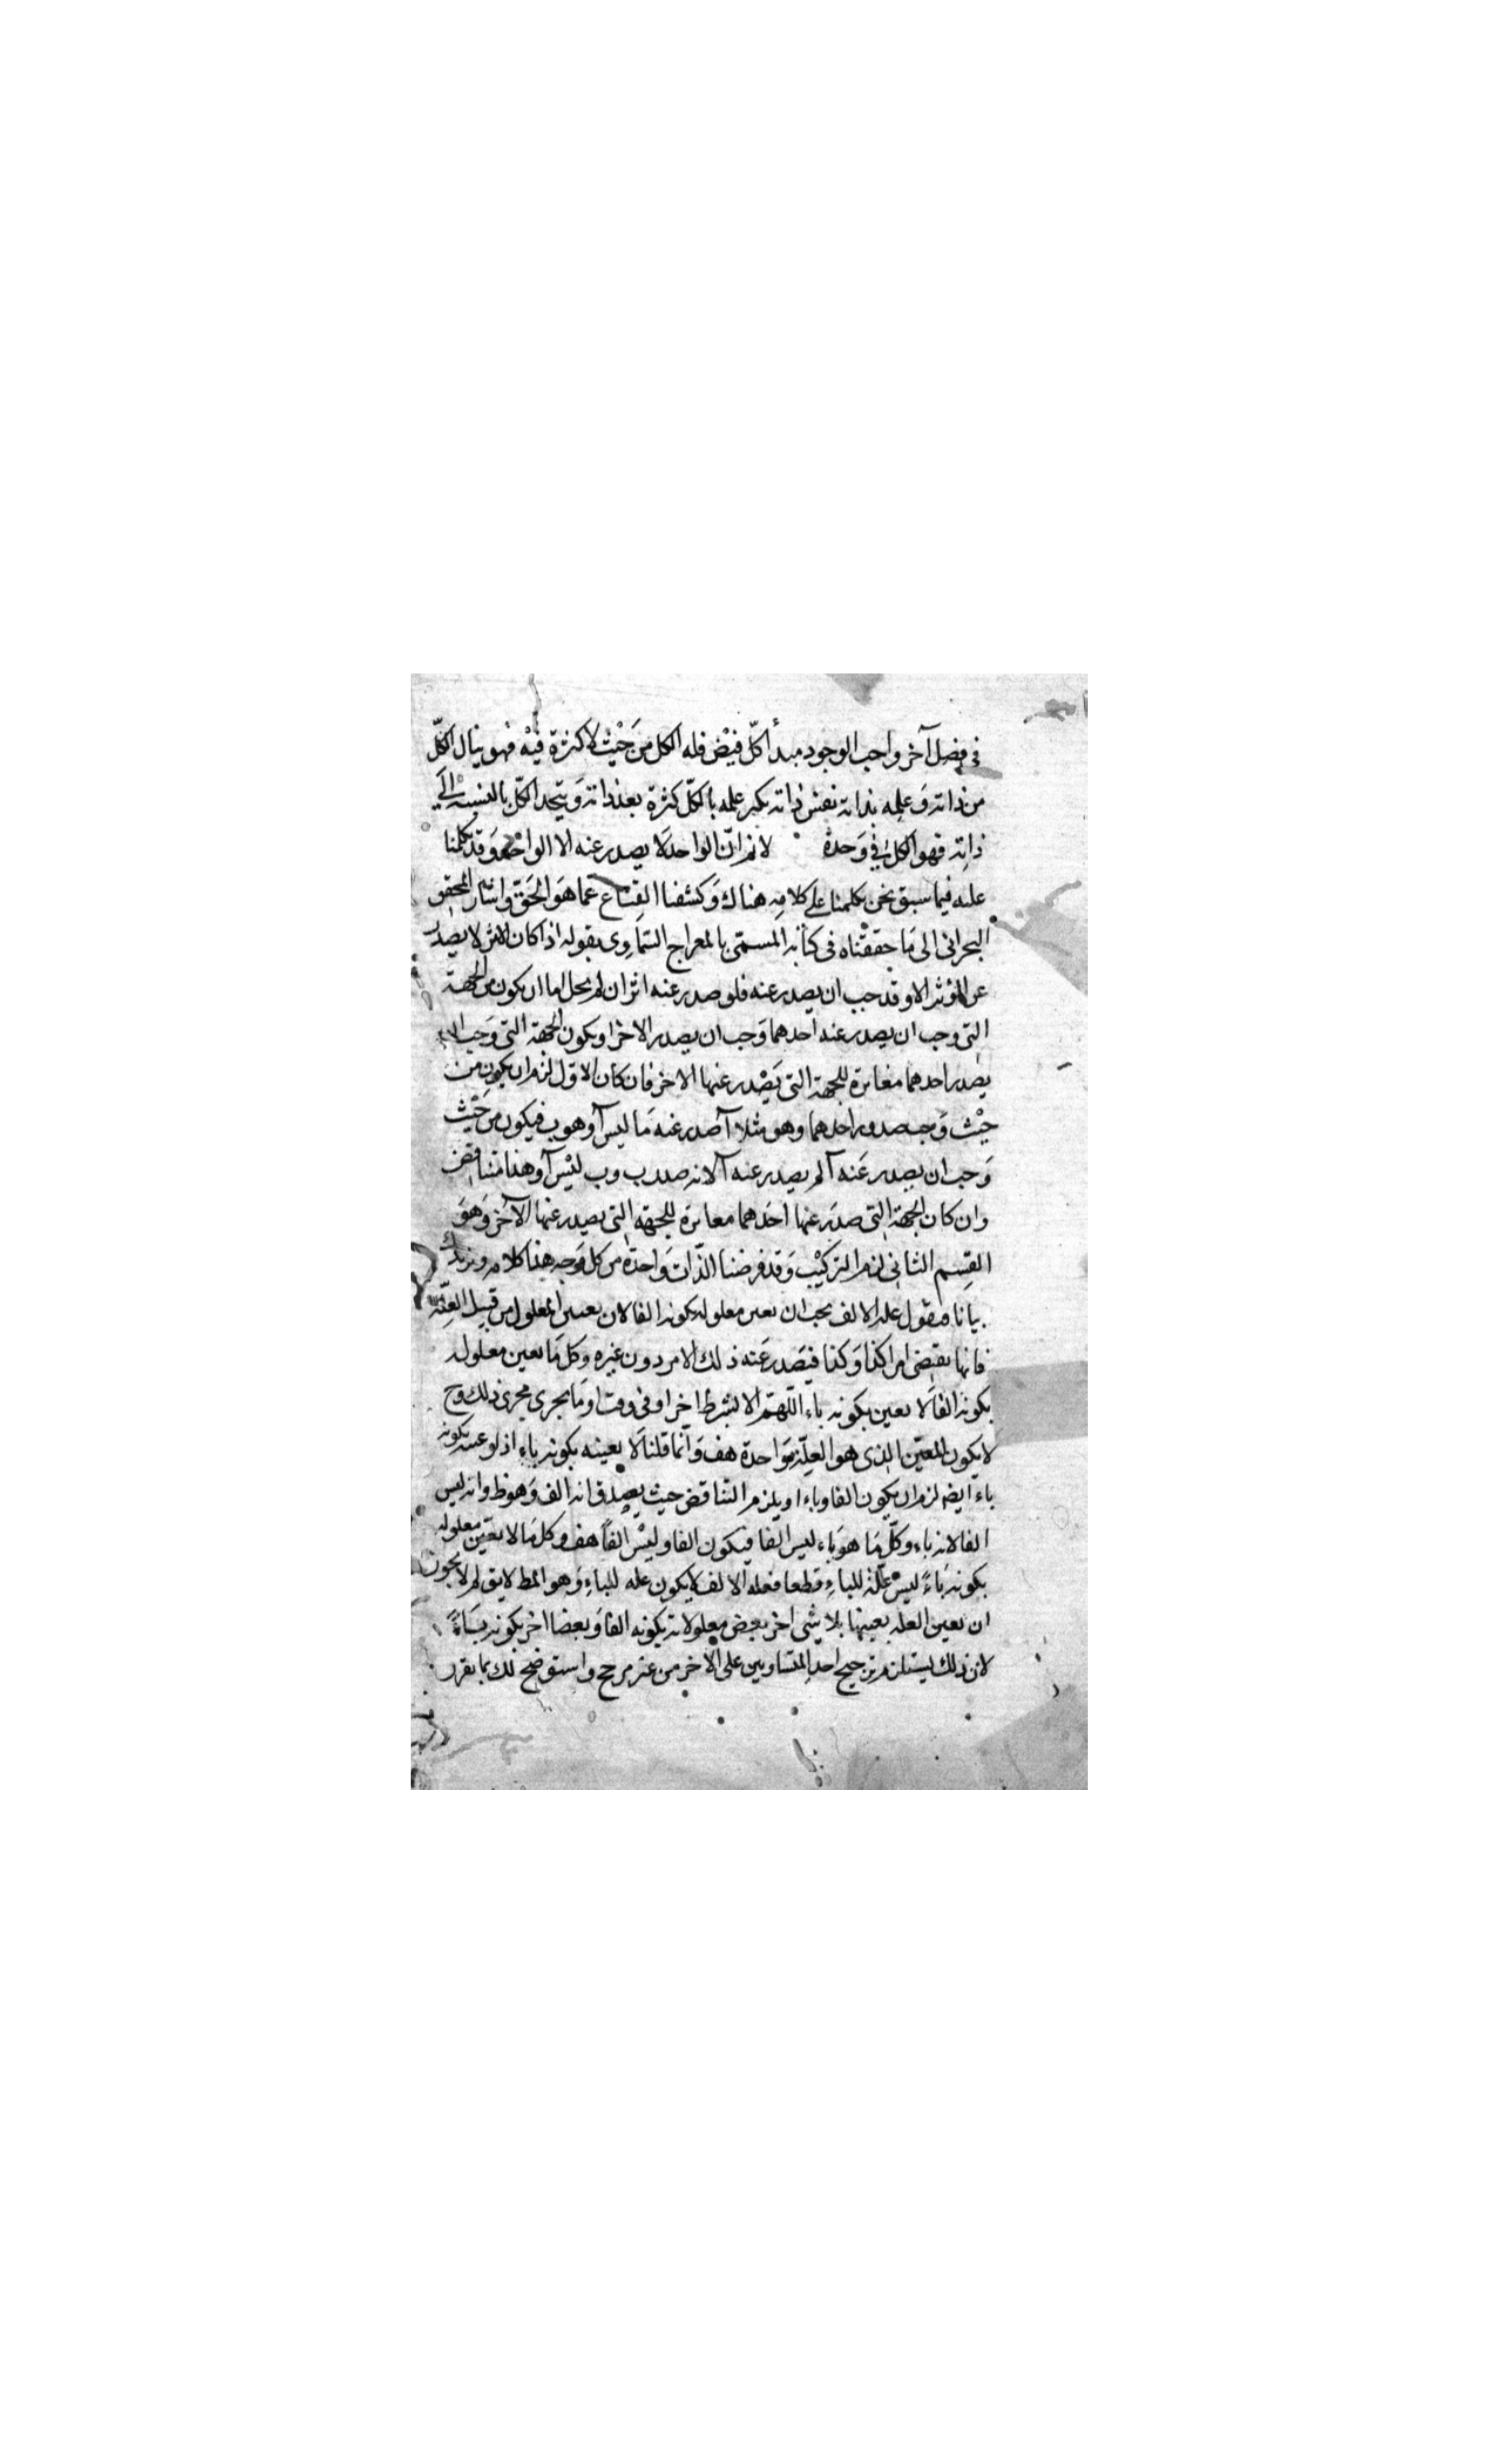 في فصل آخر واجب الوجود مبدأ كلّ فيض فله الكل من حَيْث لا كثرة فيْه فهو ينال الكلّ
من ذاته وَعلمه بذاته نفس ذاته يكبر علمه بالكلّ كثرة بعد ذاته وَيتحد الكلّ بالنسبة الَي
ذاته فهو الكل في وَحدة لا نم انّ الواحد لَا يصدر عنه الا الواحد وَقد تكلمنا
عليه فيما سبق نحن تكلمنا على كلامه هناك وَكشفنا القناع عما هوَ الحَقّ واشار المحقق
البحراني الى مَا حققْناه في كتابه المسمّى بالمعراج السّمَاوى بقوله اذا كان الاثر لا يصدر
عن المؤثر الا وقد وجب ان يصدر عنه فلو صدر عنه اثران لم يخل اما ان يكون من الجهة
التى وجب ان يصدر عنه احدهما وَجب ان يصدر الاخر او يكون الجهة التى وَجب ان
يصدر احدهما مغايرة للجهة التى يَصْدر عنها الاخر فان كان الاوّل لزم ان يكون من
حَيْث وَجب صدور احدهما وهو مثلا آ صدر عنه مَا ليس آ وهو ب فيكون من حَيْث
وَجب ان يصدر عَنه آ لم يصدر عنه آ لانه صدر ب وب ليْس آ وهذا متناقض
وان كان الجهة التى صدَر عنها احَدهما مغايرة للجهة التى يصدر عنها الآخر وَهوَ
القِسم الثانى لزم التركيْب وَقد فرضنا الذّات وَاحدة من كل وَجه هذا كلامه ونزيدك
بيانا فنقول علة الالف يجب ان تعين معلوله بكونه الفا لان تعين المعلول من قبيل العلّة
فانها تقتضى امرا كذا وَكذا فيَصدر عَنه ذلك الامر دون غيره وكل مَا تعين معلوله
بكونه الفَا لا تعين بكونه باء اللّهمّ الا بشرط اخر او في وقت او مَا يجرى مجرى ذلك وح
لا يكون المعيّن الذى هو العلّة وَاحدة هف وَانّما قلنا لَا يعينه بكونه باء اذ لو عينه بكونه
باء ايضا لزم ان يكون الفا وباء او يلزم التناقض حيث يصدق انه الف وَهو ظ وانه ليس
الفا لانه باء وكلّ مَا هوَ باء ليس الفا فيكون الفا وليْس الفاً هف وكل مَا لا تعيّن معلوله
بكونه بَاءً ليسْ علّة للباءِ قطعا فعلة الالف لا يكون علة للباءِ وَهو المط لا يق لم لا يجوز
ان تعين العلة بعينها بلا شى اخر بعض معلولاته بكونه الفا وَبعضا اخر بكونه بَاءً
لان ذلك يستلزم ترجيح احد المتساويين على الاخر من غير مرجح واستوضح ذلك بما تقرر